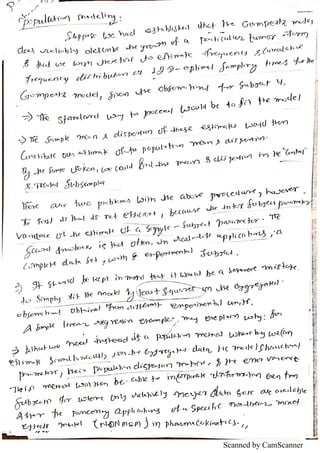 Population modeling:
Suppose we had established that the Gompertz model
does suitably describe the growth of a particular tumor strain
& that we wish therefore to estimate frequency & cumulative
frequency distribution of
optimal sampling times for the
Gompertz model, given the observations for subject 4.
⇒ The standard way to proceed would be to fit the model
⇒ The sample mean & dispersion of these estimates would then
Constitute our estimate of the population mean & dispersion.
By the same token, we could find the mean & dispersion in the "Control"
& treated subsamples
There are two problems with the above procedure, however.
The first is that is not efficient, because the inter subject parameter
Variance of the estimate of a single-subject parameter. The
Second drawback is that often, in real-life applications, a
complete data set, with & experimental subject.
⇒ It should be kept in mind that it would be a severe mistake
to simply fit the model by least squares on the aggregated
observations obtained from different experimental units.
A simple linear regression example may explain why:
⇒ What we need instead is a population method whereby we can
estimate simultaneously, on the aggregated data, the model structural
parameters, their population dispersion matrix, & the error variance
This method will then be able to incorporate information even from
Subjects for whom only relatively meager data sets are available
After the pioneering applications of a specific nonlinear mixed
effects model (NONMEM) in pharmacokinetics,,
Scanned by CamScanner